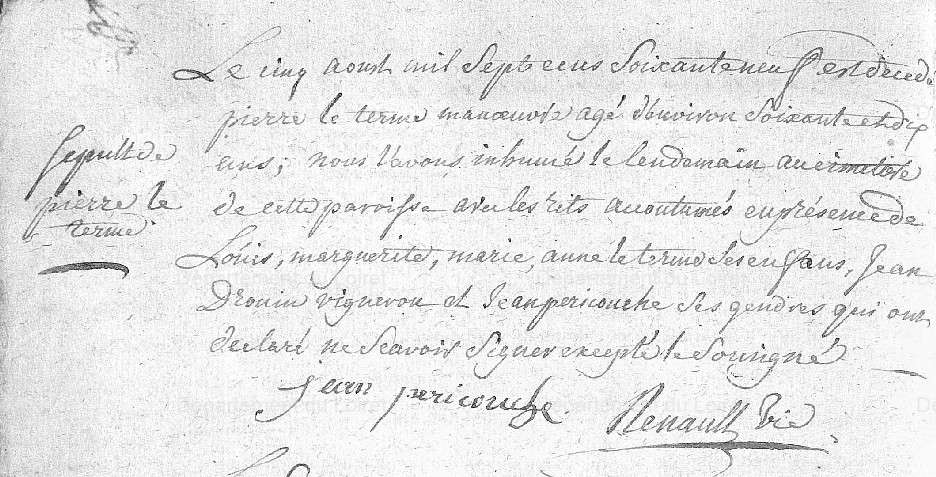 Le cinq aoust mil Sept cens Soixante neuf est décédé
pierre le terme manoeuvre agé d'environ Soixante et dix
ans; nous l'avons inhumé le lendemain au cimetiere
de cette paroisse avec les rits acoutumés en présence de
Loüis, marguerite, marie, anne le terme Ses enfans, Jean
Droüin vigneron et Jean pericouche Ses gendres qui ont
declaré ne Scavoir Signer excepté le Souſigné
Sepult de
pierre le
terme
jean pericouche
Renault vic